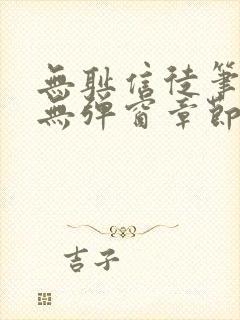 無耻信徒筆
無彈窗章節
吉子